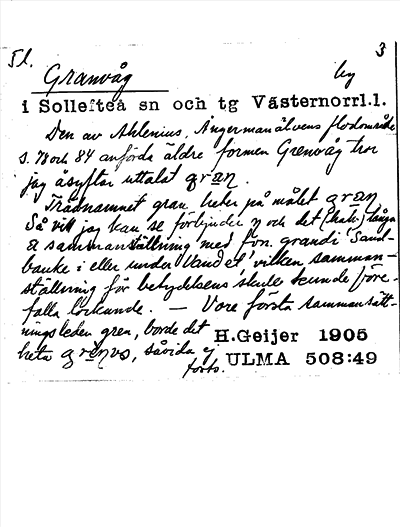 5l. 3
Granvåg by
i Sollefteå sn och tg Västernorrl.l.
Den av Ahlenius, Ångermanälvens flodområde
s. 78 och 84 anförda äldre formen Grenvåg tror
jag åsyftar uttalat gran.
Trädnamnet gran heter på målet gran
Så vitt jag kan se förbjuder η och det (hak.) långa
a sammanställning med fvn. grandi 'Sand-
banke i eller under vandet', vilken samman-
ställning för betydelsens skull kunde före-
falla lockande. — Vore första sammansätt-
ningsleden gren, borde det H.Geijer 1905
heta, såvida ej ULMA 508:49
forts.